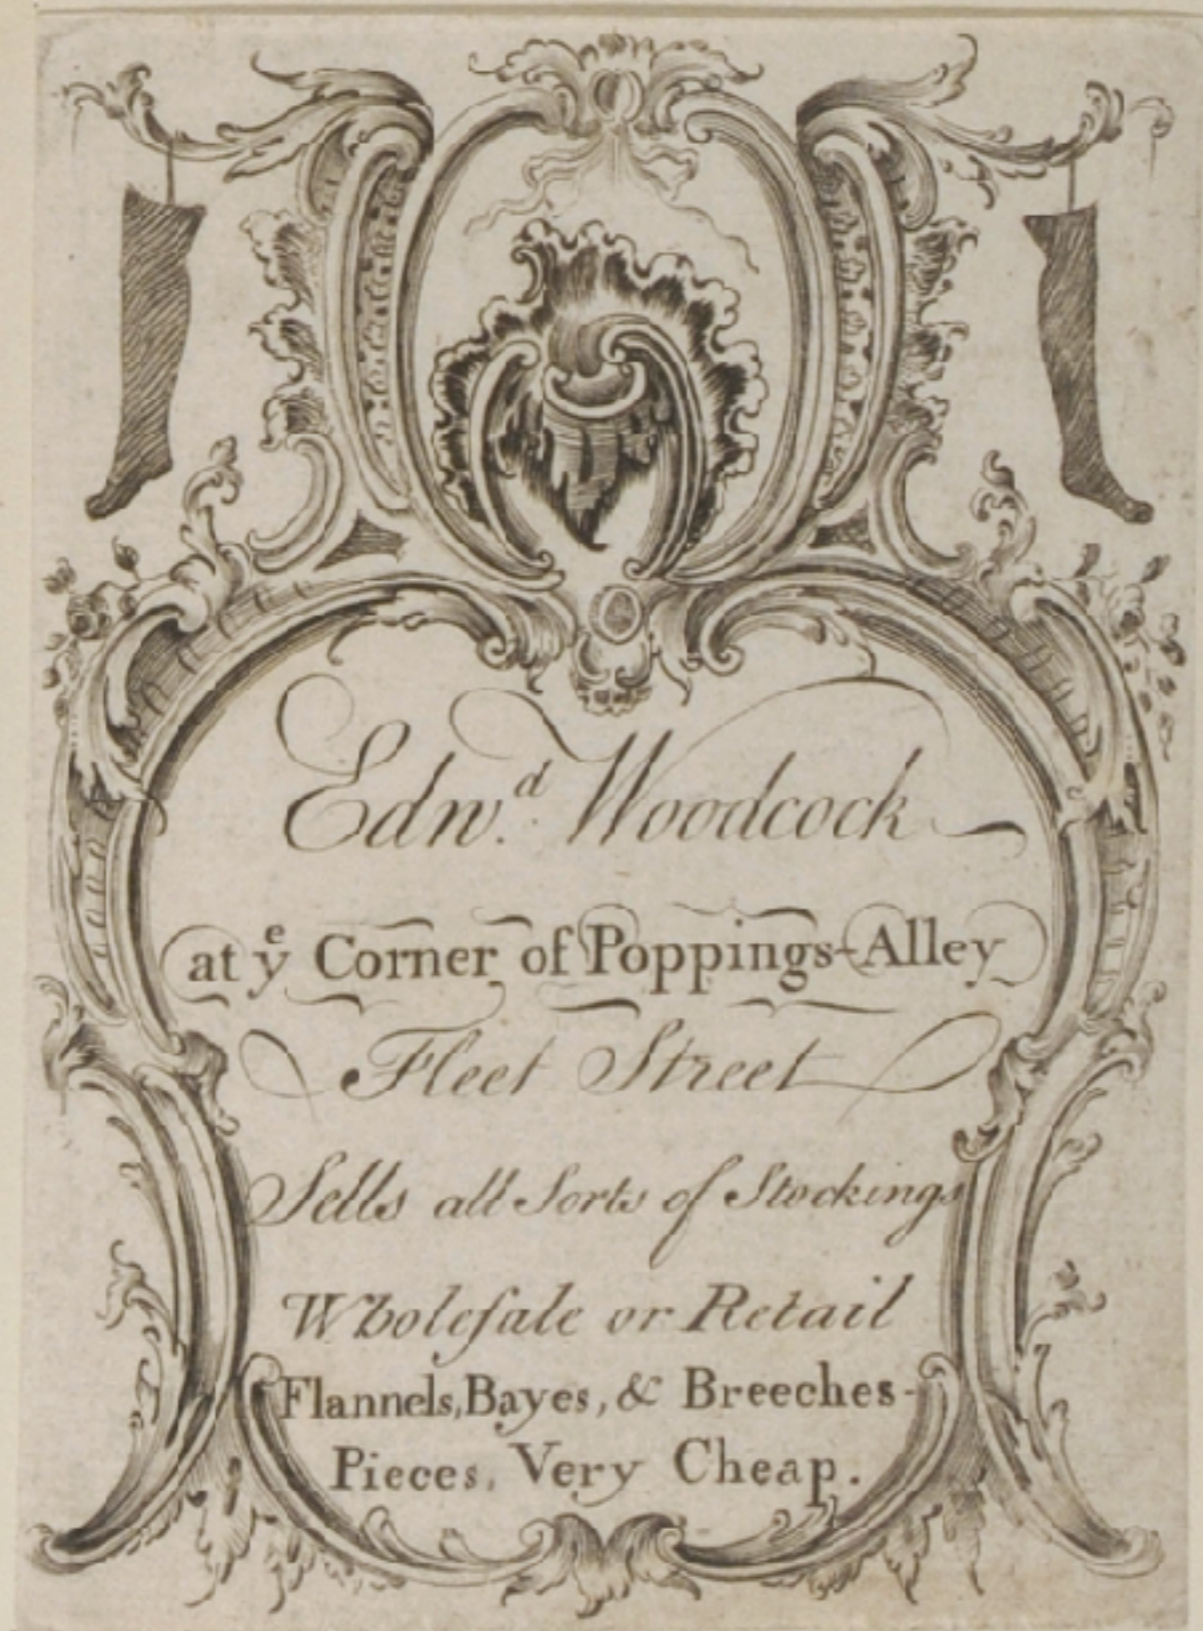 Edw.d Woodcock
at ye Corner of Poppings-Alley
Fleet Street
Sells all Sorts of Stockings
Wholeſale or Retail
Flannels, Bayes, & Breeches-
Pieces, Very Cheap.